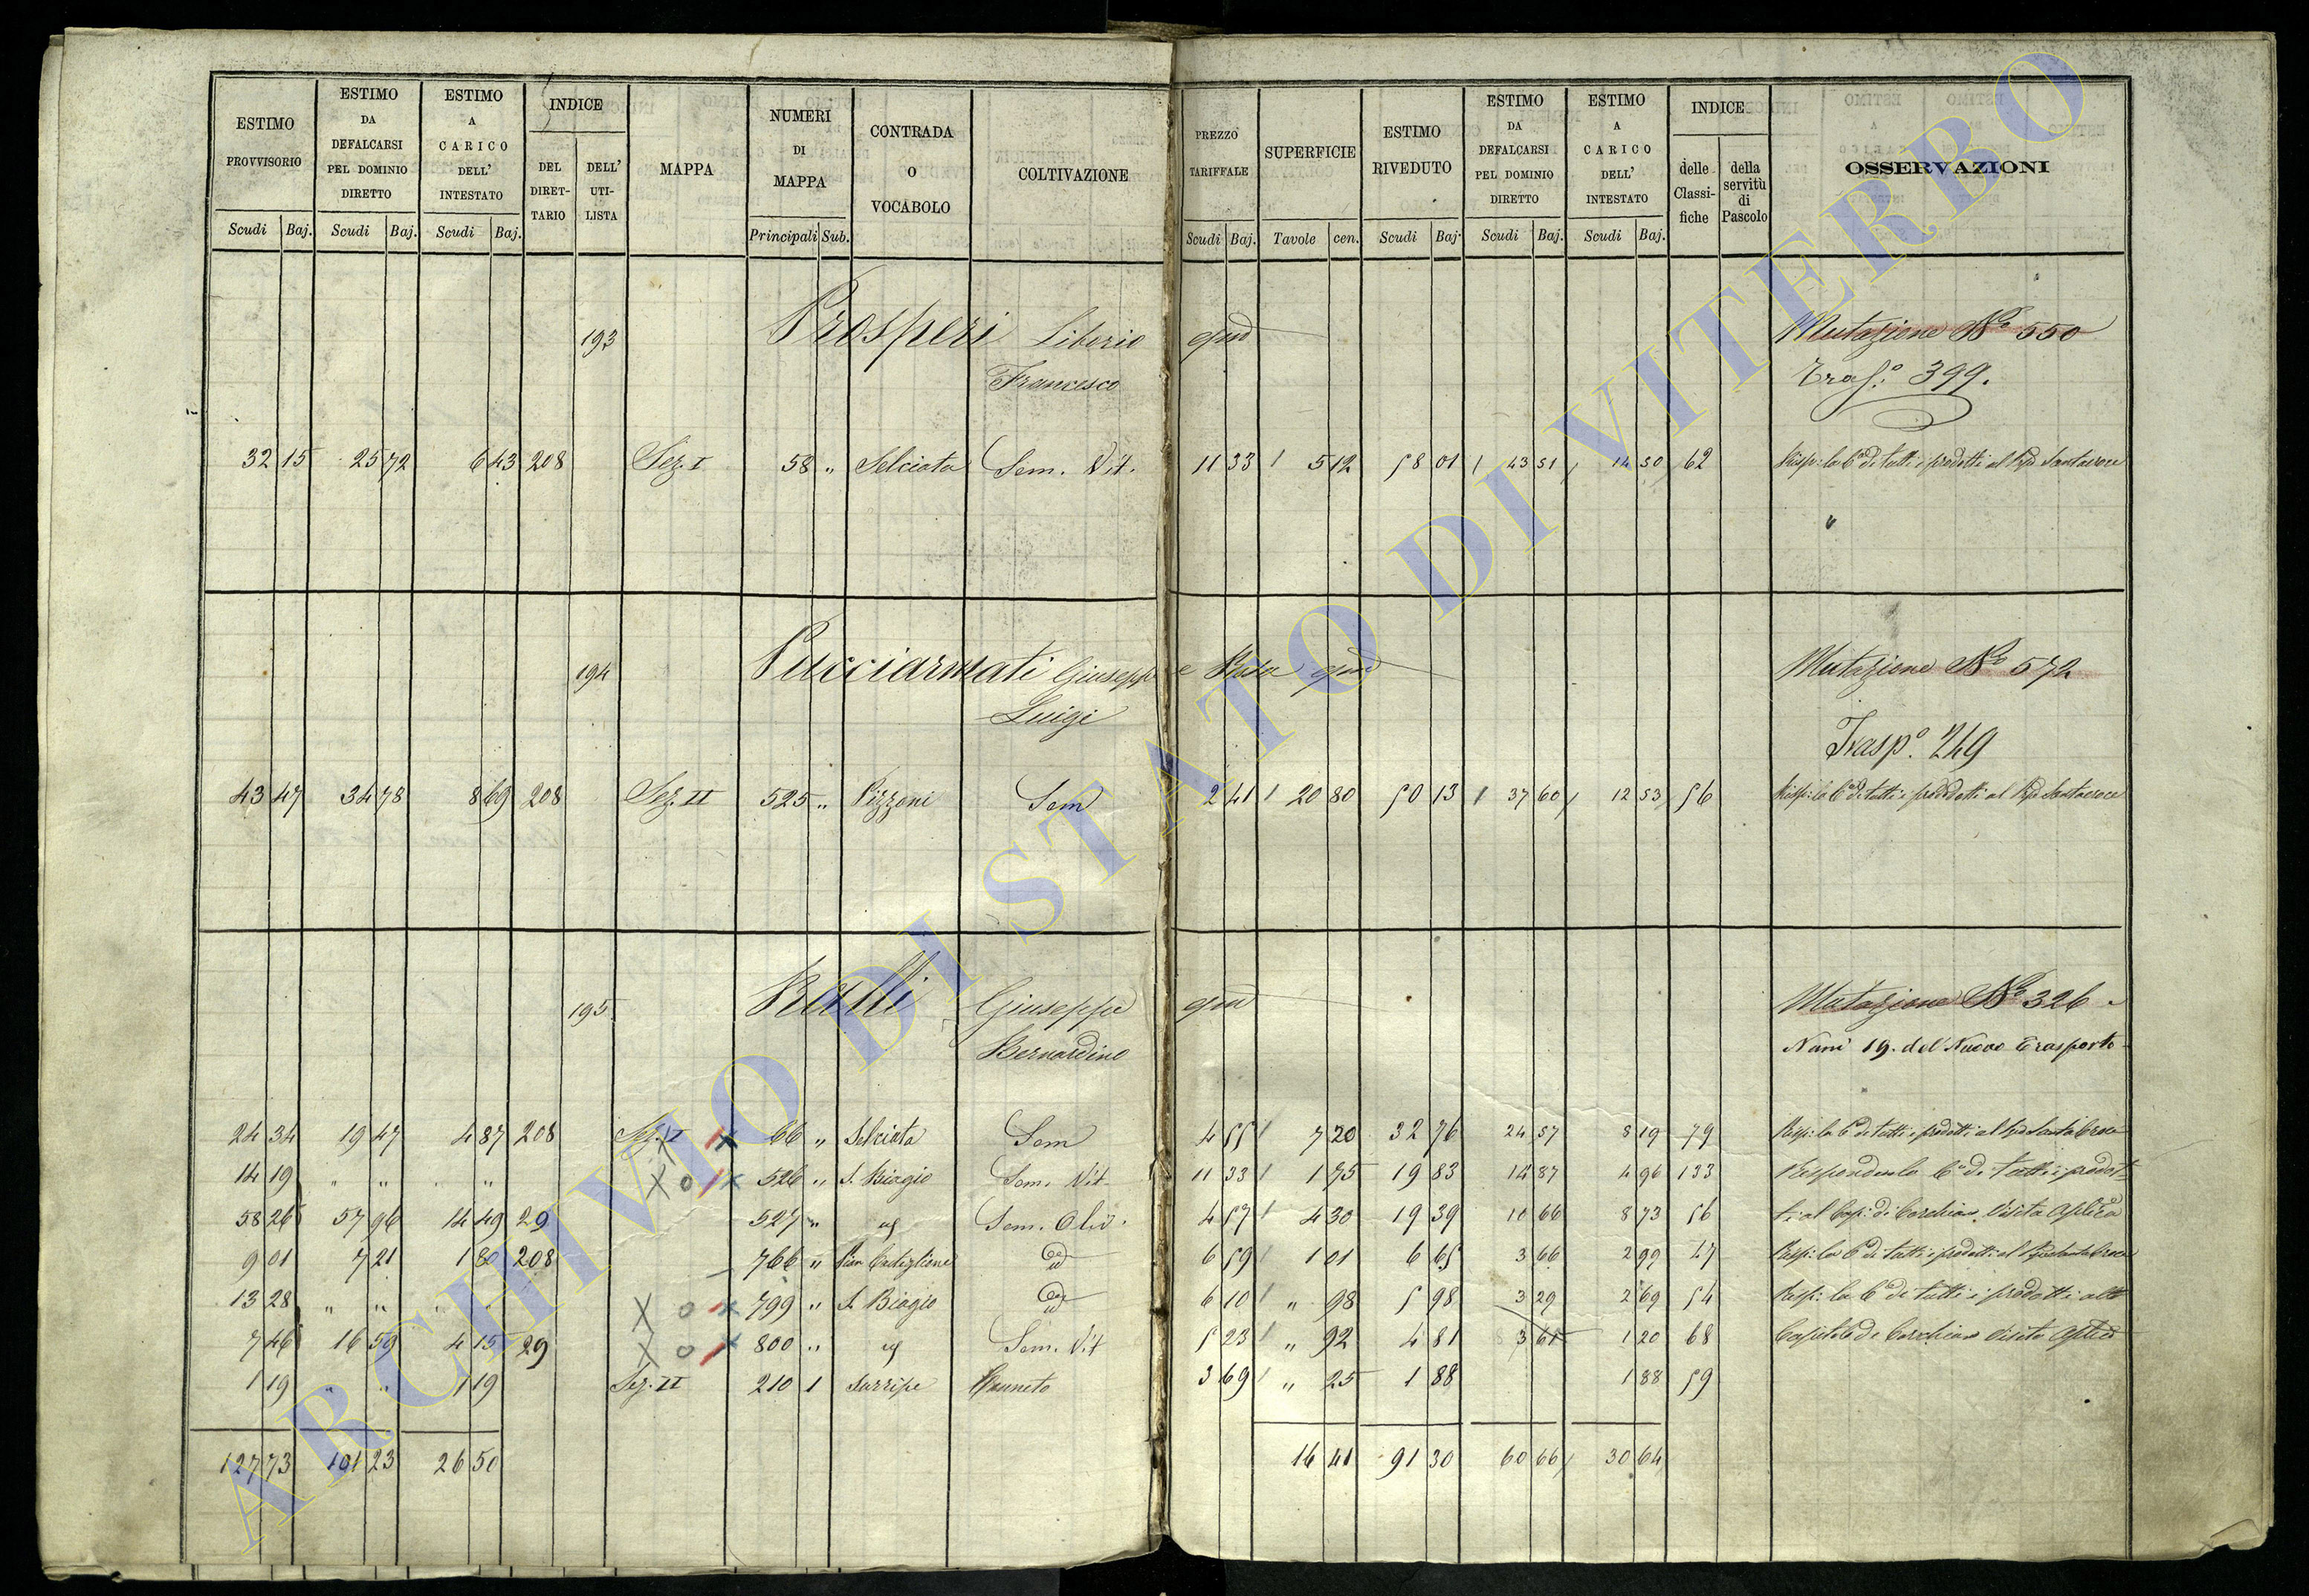 ESTIMO PROVVISORIO Scudi Baj. ESTIMO DA DEFALCARSI PEL DOMINIO DIRETTO Scudi Baj. ESTIMO A CARICO DELL' INTESTATO Scudi Baj. INDICE DEL DIRET-TARIO DELL' UTI-LISTA MAPPA NUMERI DI MAPPA Principali Sub. CONTRADA O VOCABOLO COLTIVAZIONE PREZZO TARIFFALE Scudi Baj. SUPERFICIE Tavole cen. ESTIMO RIVEDUTO Scudi Baj. ESTIMO DA DEFALCARSI PEL DOMINIO DIRETTO Scudi Baj. ESTIMO A CARICO DELL' INTESTATO Scudi Baj. INDICE delle Classi-fiche della servitù di Pascolo OSSERVAZIONI
193 Prosperi Liborio qm Mutazione No 550
Francesco Trasp.o 399.
32 15 25 72 6 43 208 Sez. I 58 „ Selciata Sem. Vit. 11 33 5 12 58 01 43 51 14 50 62 Risp: la 6a di tutti i prodotti al
194 Pucciarmati Giuseppe qm Mutazione No 572
Luigi
Trasp.o 249
43 47 34 78 8 69 208 Sez. II 525 „ Pizzoni Sem 2 41 20 80 50 13 37 60 12 53 56 Risp: la 6a di tutti i prodotti al
195 Rulli Giuseppe qm Mutazione No 326
Bernardino Num 19. del Nuovo Trasporto
24 34 19 47 4 87 208 Sez. I X 66 „ Selciata Sem 4 55 7 20 32 76 24 57 8 19 79 Risp: la 6a di tutti i prodotti al
14 19 „ „ „ X 0 1 X 526 „ S. Biagio Sem. Vit 11 33 1 75 19 83 14 87 4 96 133 Risponde la 6a di tutti i prodot-
58 26 57 96 14 49 29 527 „ Sem. Oliv. 4 57 4 30 19 39 10 66 8 73 56 ti al Cap: di Corchiano
9 01 7 21 1 80 208 766 „ Pian Castiglione 6 59 1 01 6 65 3 66 2 99 47 Risp: la 6a di tutti i prodotti al
13 28 „ „ „ „ X 0 1 X 799 „ S. Biagio 6 10 „ 98 5 98 3 29 2 69 54 Risp: la 6a di tutti i prodotti al
7 46 16 59 4 15 29 X 0 1 X 800 „ Sem. Vit 5 23 „ 92 4 81 3 61 1 20 68 Capitolo di Corchiano
1 19 „ „ 1 19 Sez. II 210 1 Sarripe Canneto 3 69 „ 25 1 88 1 88 59
127 73 101 23 26 50 16 41 91 30 60 66 30 64
ARCHIVIO DI STATO DI VITERBO